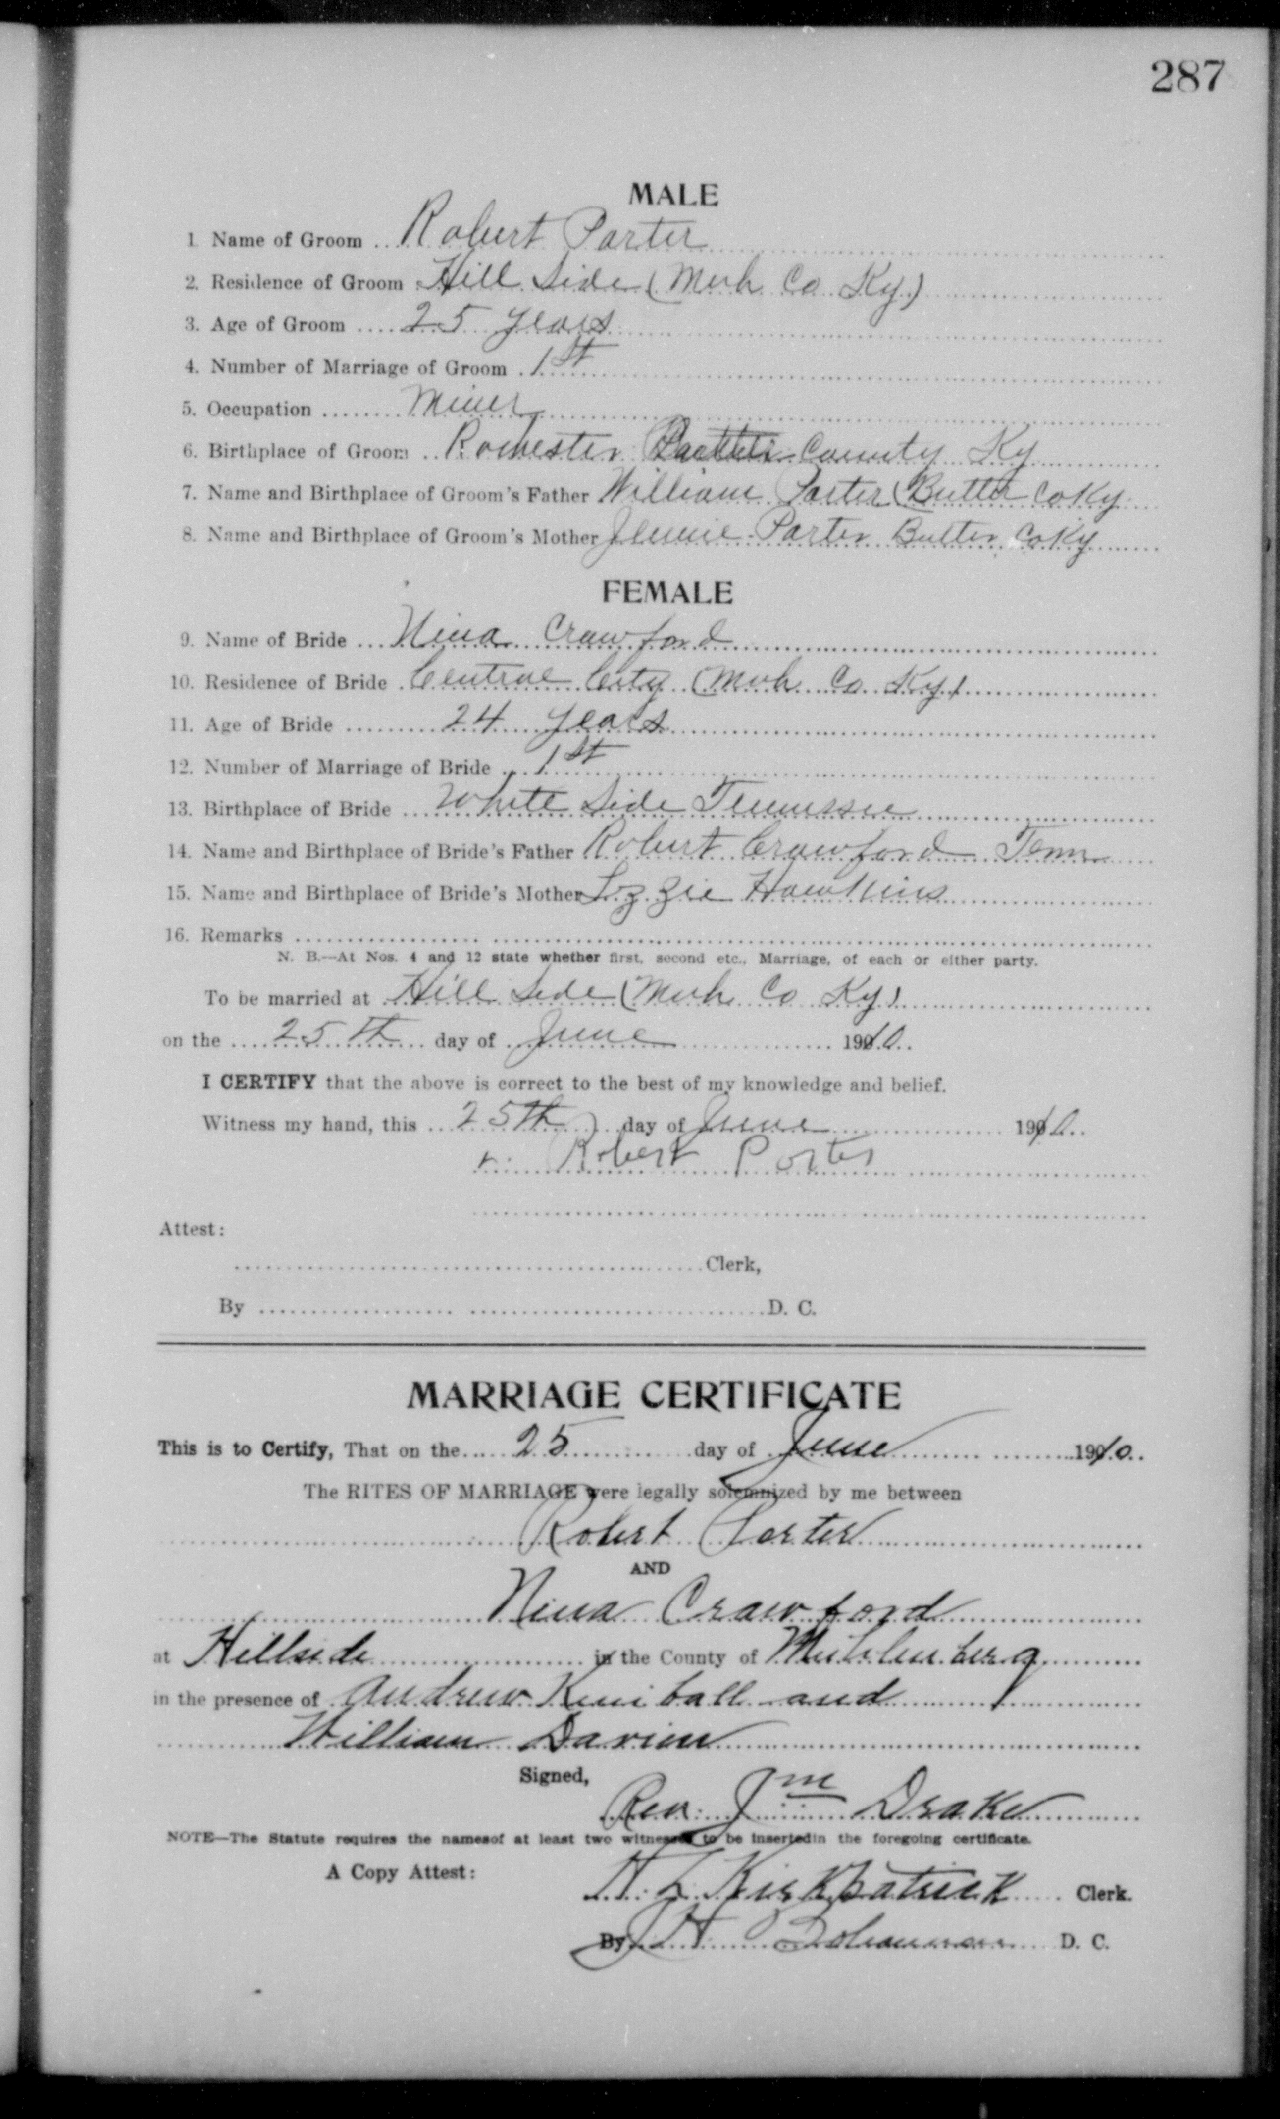 287
MALE
1. Name of Groom Robert Porter
2. Residence of Groom Hill Side (Muh Co Ky)
3. Age of Groom 25 years
4. Number of Marriage of Groom 1st
5. Occupation Miner
6. Birthplace of Groom Rochester County Ky
7. Name and Birthplace of Groom's Father William Porter (Butler Co Ky
8. Name and Birthplace of Groom's Mother Jennie Porter Butler Co Ky
FEMALE
9. Name of Bride Nina Crawford
10. Residence of Bride Central City (Muh Co Ky)
11. Age of Bride 24 years
12. Number of Marriage of Bride 1st
13. Birthplace of Bride White Side Tennessee
14. Name and Birthplace of Bride's Father Robert Crawford Tenn
15. Name and Birthplace of Bride's Mother Lizzie Hawkins
16. Remarks
N. B.—At Nos. 4 and 12 state whether first, second etc., Marriage, of each or either party.
To be married at Hill Side (Muh Co Ky)
on the 25th day of June 1910.
I CERTIFY that the above is correct to the best of my knowledge and belief.
Witness my hand, this 25th day of June 1910.
Robert Porter
Attest:
Clerk,
By D. C.
MARRIAGE CERTIFICATE
This is to Certify, That on the 25 day of June 1910.
The RITES OF MARRIAGE were legally solemnized by me between
Robert Porter
AND
Nina Crawford
at Hillside in the County of Muhlenberg
in the presence of Andrew Kimball and
William
Signed,
Rev. Jm Drake
NOTE—The Statute requires the namesof at least two witnesses to be insertedin the foregoing certificate.
A Copy Attest: Kirkpatrick Clerk.
By D. C.